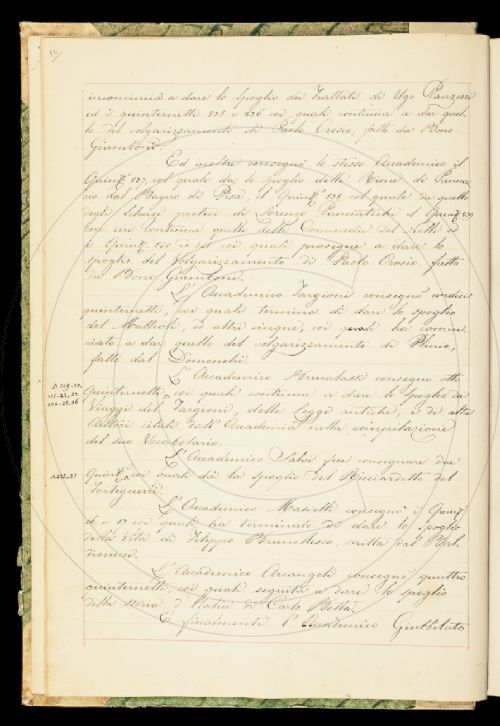 incomincia a dare lo spoglio dei Trattati di Ugo Panziera
ed i quinternetti 835 e 836 coi quali continua a dar quel-
lo del volgarizzamento di Paolo Orosio, fatto da Bono
Giamboni.
Ed inoltre consegnò lo stesso Accademico il
Quint.° 837, col quale dà lo spoglio delle Rime di Pancra-
zio dal Bagno di Pisa, il Quint.° 838 col quale dà quello
degli Scherzi poetici di Lorenzo Panciatichi il Quint.° 839
con cui continua quello delle Commedie del Cecchi ed
i Quint.i 840 e 841 coi quali prosegue a dare lo
spoglio del Volgarizzamento di Paolo Orosio fatto
da Bono Giamboni.
L'Accademico Targioni consegnò undici
quinternetti, coi quali termina di dare lo spoglio
del Mattioli, e altri cinque, coi quali ha comin-
ciato a dar quello del volgarizzamento di Plinio,
fatto dal Domenichi.
L'Accademico consegnò otto
Quinternetti coi quali continua a dare lo spoglio dei
Viaggi del Targioni, delle Leggi antiche, e di altri
Autori citati dall'Accademia nella compilazione
del suo Vocabolario.
L'Accademico Salvi fece consegnare due
Quint.i coi quali dà lo spoglio del Ricciardetto del
Forteguerri.
L'Accademico Masselli consegnò i Quint.i
16 e 17 coi quali ha terminato di dare lo spoglio
della Vita di Filippo Brunellesco, scritta dal Bal-
dinucci.
L'Accademico Arcangeli consegnò quattro
quinternetti, coi quali seguita a dare lo spoglio
della storia d'Italia di Carlo Botta.
E finalmente l'Accademico